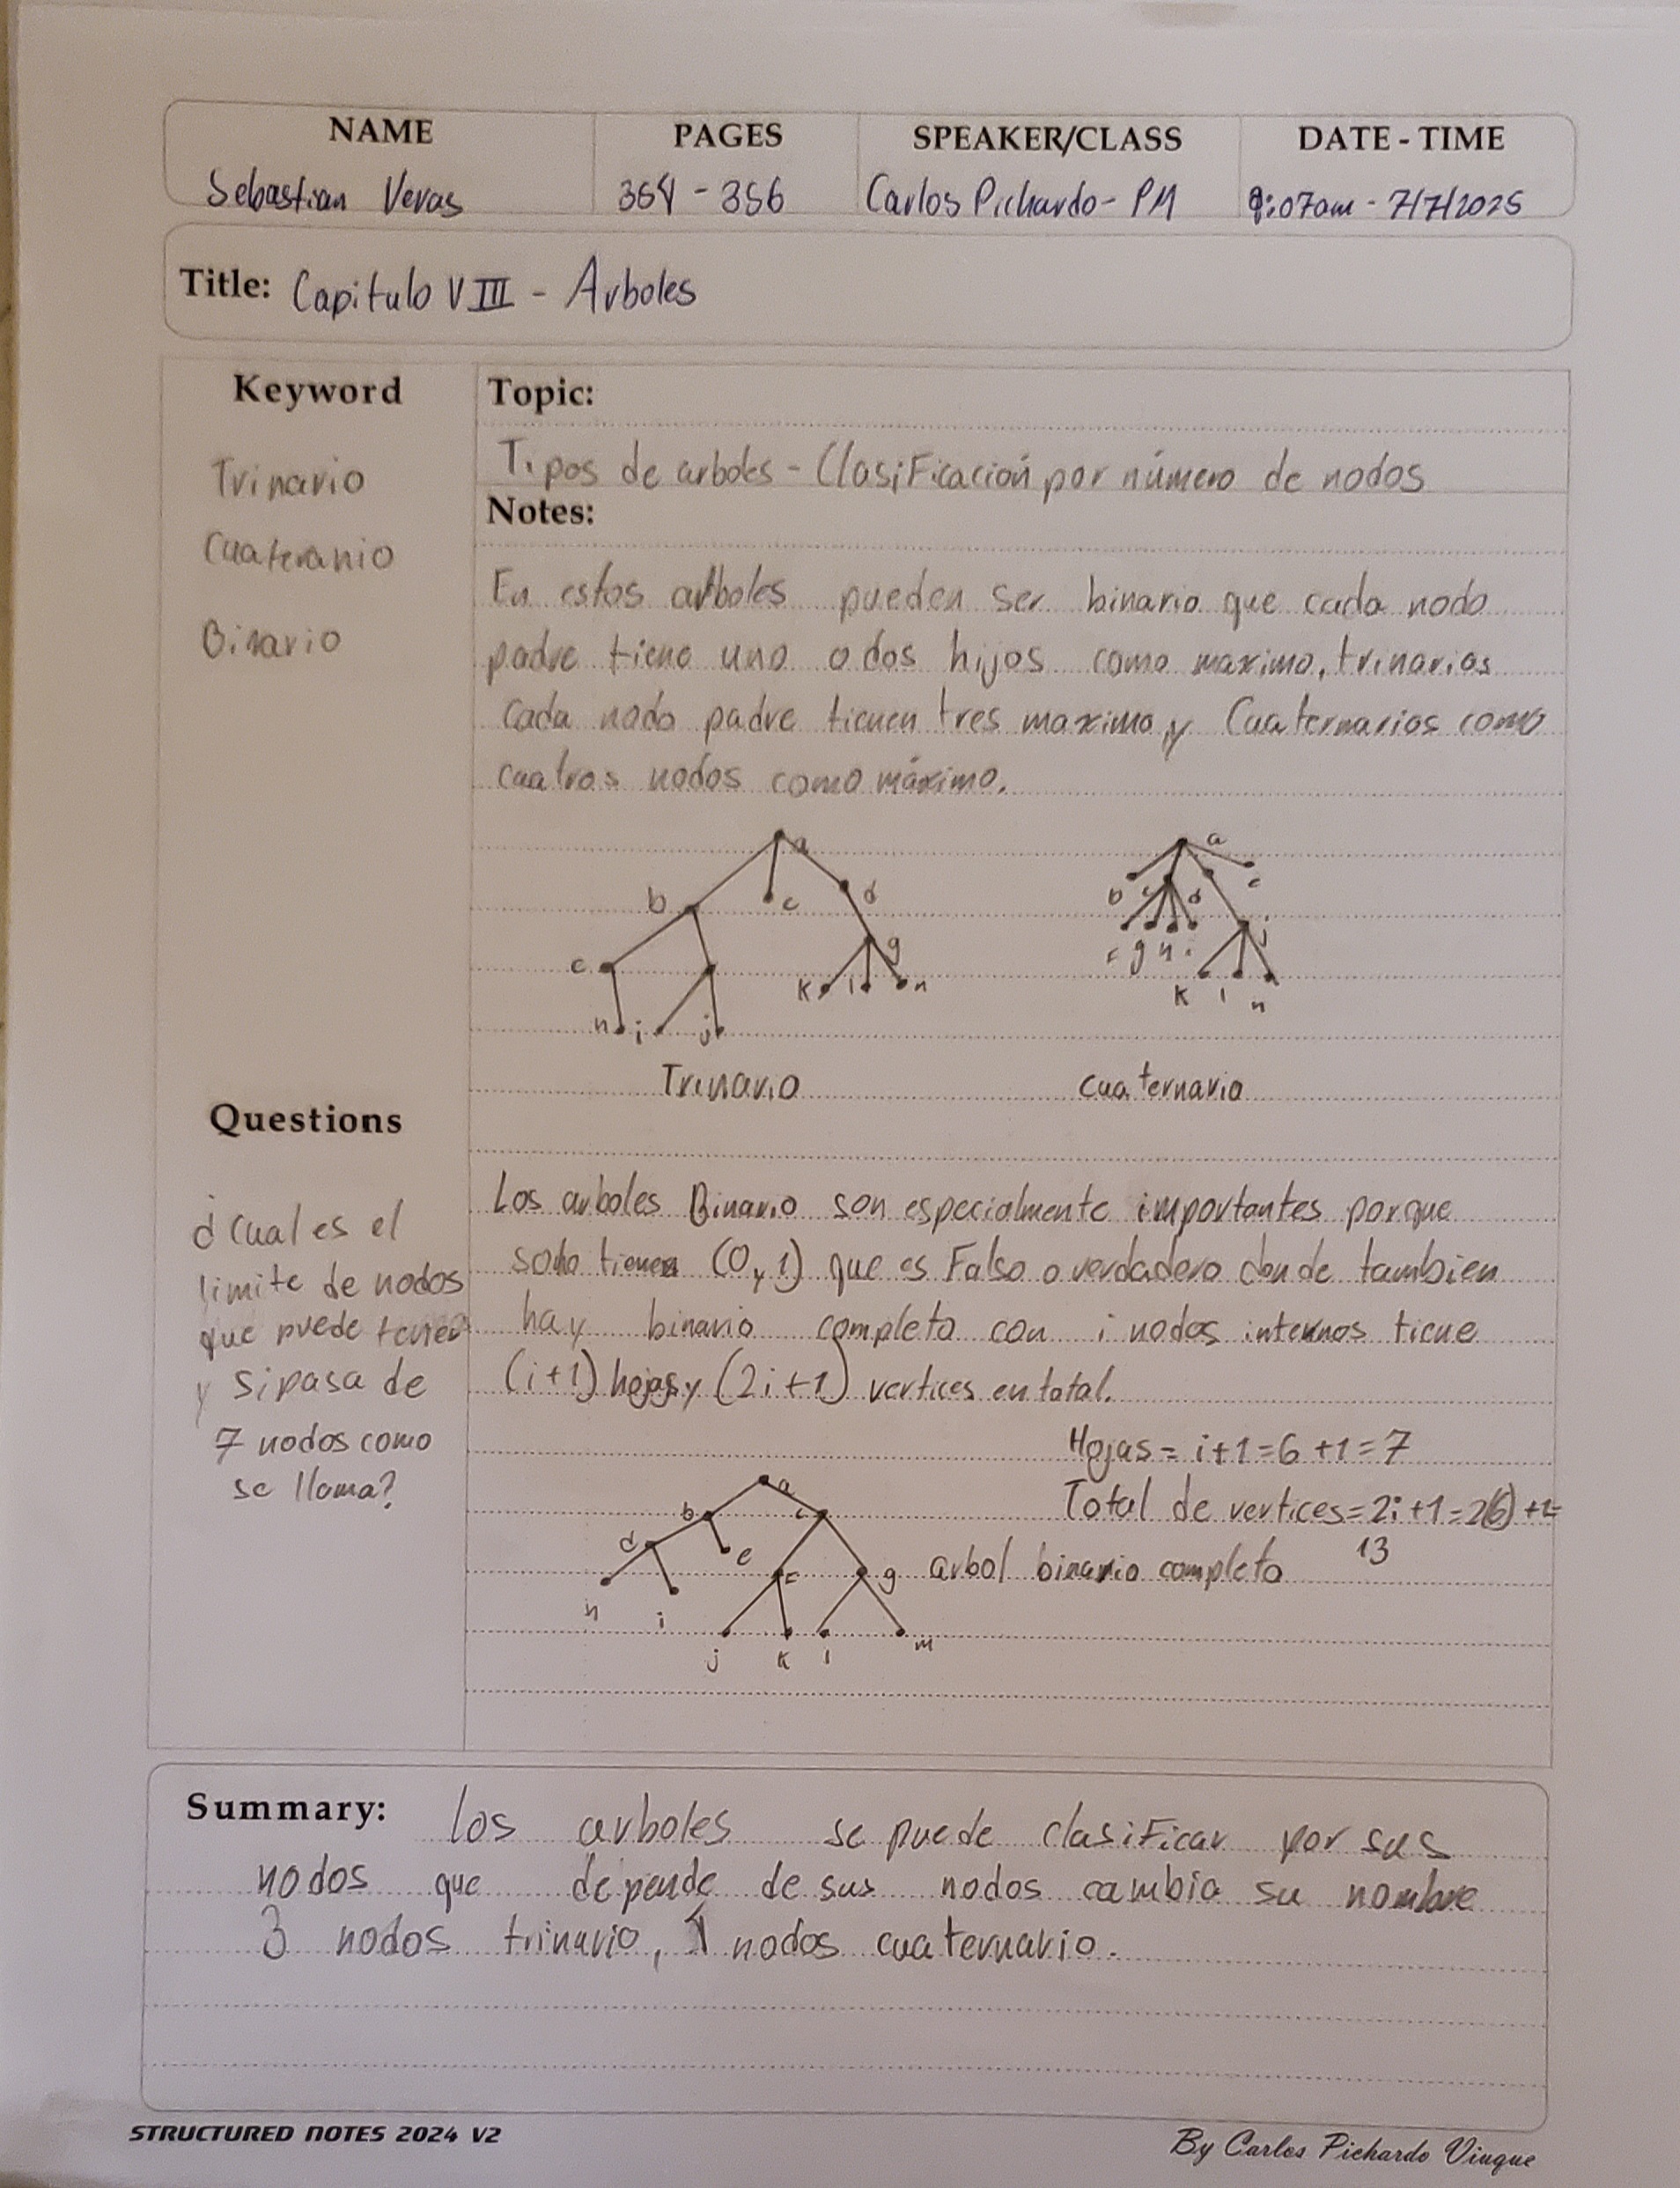 NAME PAGES SPEAKER/CLASS DATE - TIME
Sebastian Veras 354 - 356 Carlos Pichardo - PM 9:07am - 7/7/2025
Title: Capitulo VIII - Arboles
Keyword
Trinario
Cuateranio
Binario
Topic:
Tipos de arboles - Clasificación por número de nodos
Notes:
En estos arboles pueden ser binario que cada nodo
padre tiene uno o dos hijos como maximo, trinarios
cada nodo padre tienen tres maximo y Cuaternarios como
cuatros nodos como máximo.
a
b c d
e g
k l n
h i j
Trinario
a
b c d e
f g h i j
k l n
cuaternario
Questions
¿Cual es el
limite de nodos
que puede tener
y si pasa de
7 nodos como
se llama?
Los arboles Binario son especialmente importantes porque
solo tienen (0 y 1) que es Falso o verdadero donde tambien
hay binario completo con i nodos internos tiene
(i+1) hojas y (2i+1) vertices en total.
Hojas = i+1 = 6+1 = 7
Total de vertices = 2i+1 = 2(6)+1 =
13
a
b c
d e f g
h i
j k l m
arbol binario completo
Summary: los arboles se puede clasificar por sus
nodos que depende de sus nodos cambia su nombre
3 nodos trinario, nodos cuaternario.
STRUCTURED NOTES 2024 V2
By Carlos Pichardo Viuque